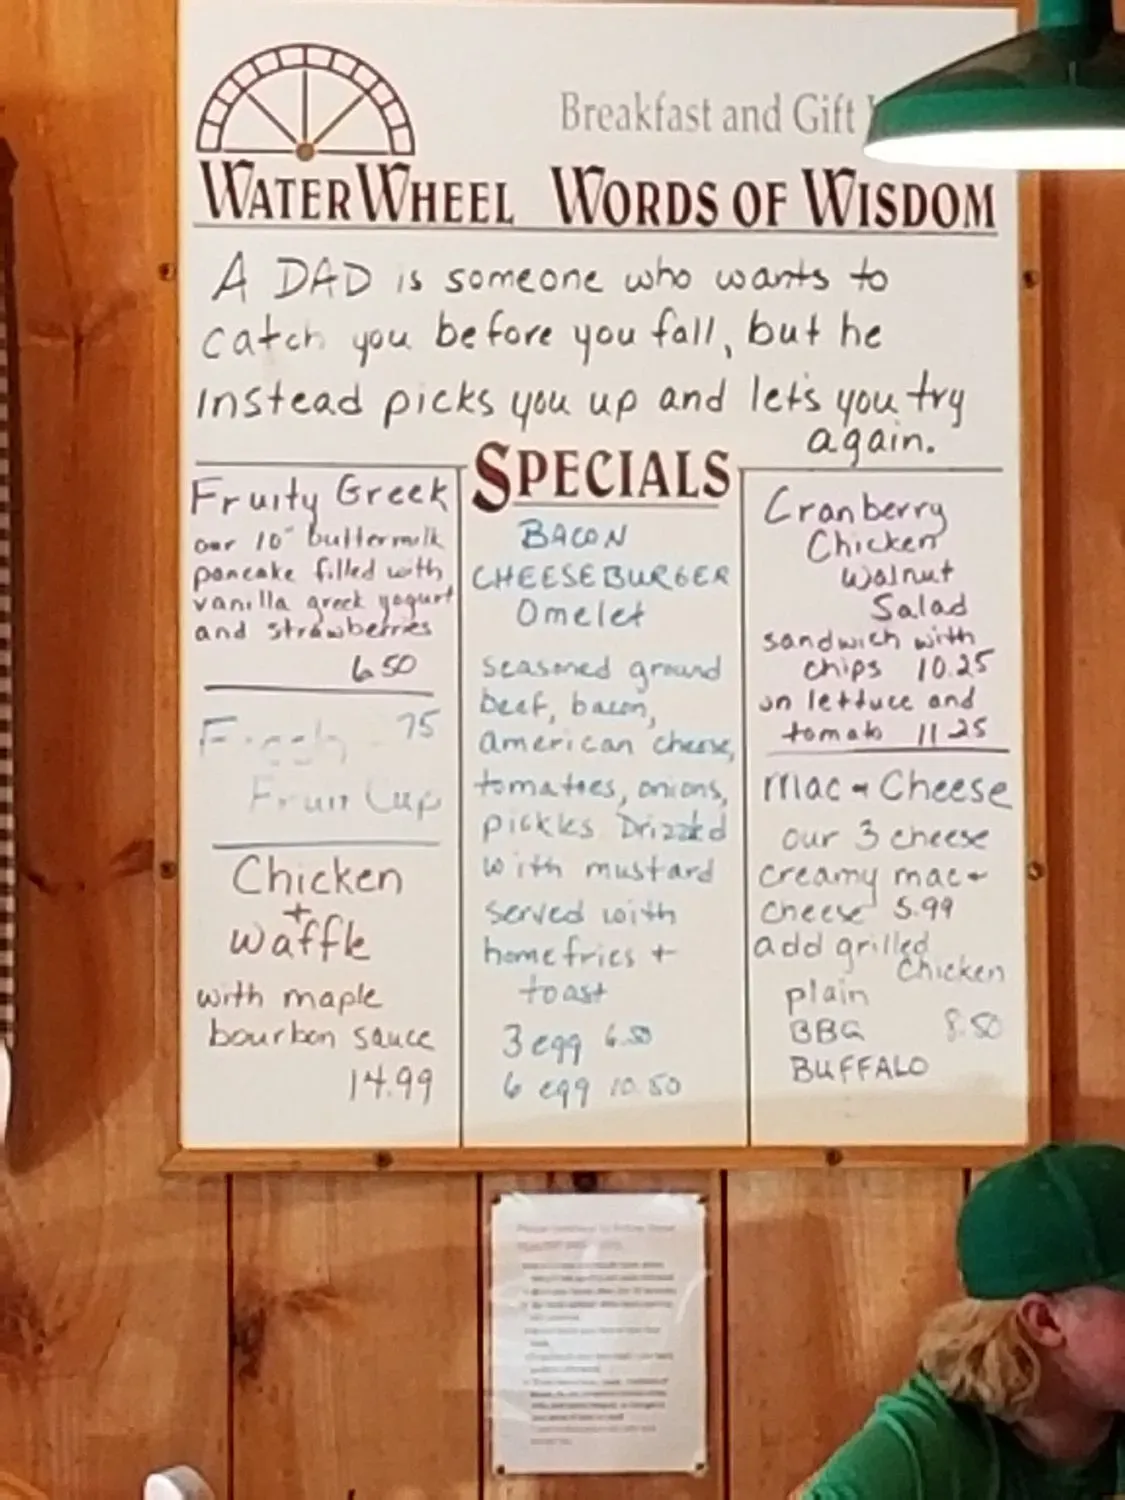 Breakfast and Gift
WATERWHEEL WORDS OF WISDOM
A DAD is someone who wants to
catch you before you fall, but he
instead picks you up and let's you try
again.
SPECIALS
Fruity Greek
our 10" buttermilk
pancake filled with
vanilla greek yogurt
and strawberries
6.50
75
Fruit Cup
Chicken
+
Waffle
with maple
bourbon sauce
14.99
BACON
CHEESEBURGER
Omelet
seasoned ground
beef, bacon,
american cheese,
tomatoes, onions,
pickles. Drizzled
with mustard
served with
homefries +
toast
3 egg 6.50
6 egg 10.50
Cranberry
Chicken
Walnut
Salad
sandwich with
chips 10.25
on lettuce and
tomato 11.25
Mac + Cheese
our 3 cheese
creamy mac +
cheese 5.99
add grilled
chicken
plain
BBQ 8.50
BUFFALO